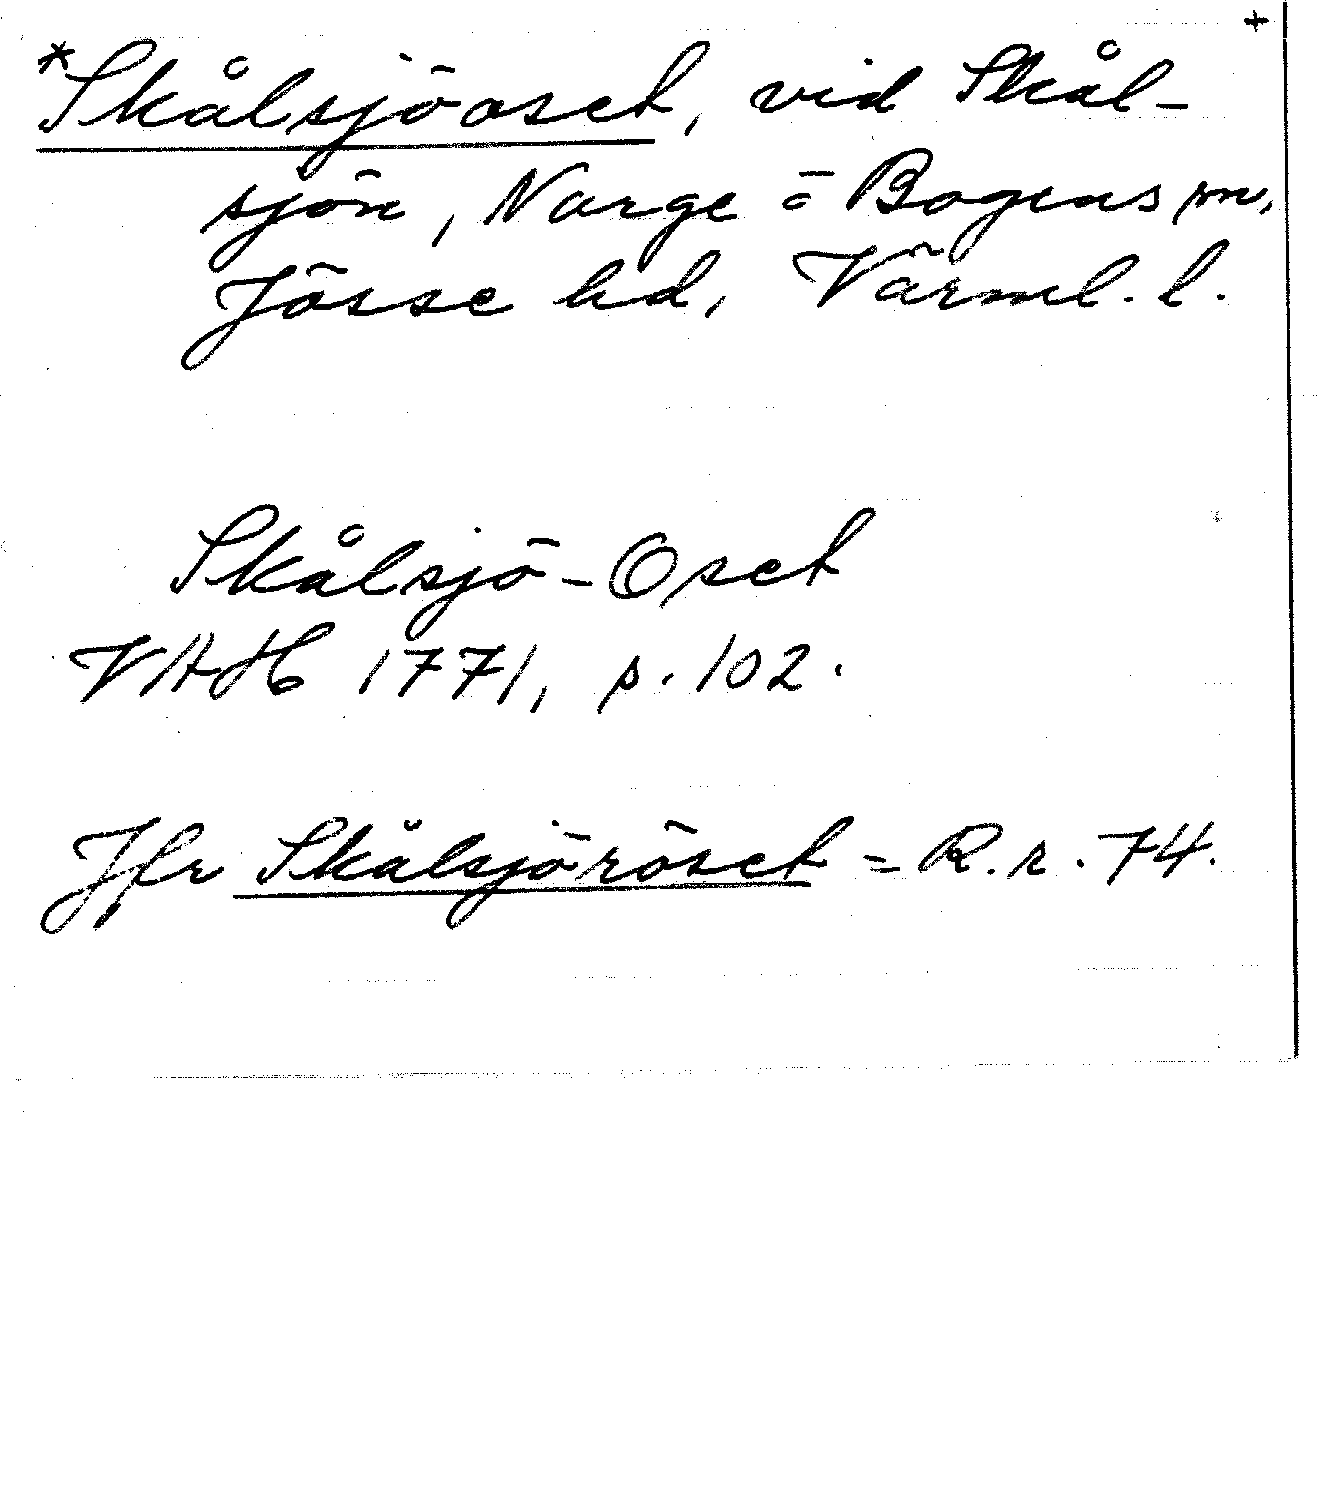 +
*Skålsjöoset, vid Skål-
sjön, Norge = Bogens sn,
Jösse hd, Värml. l.
Skålsjö-Oset
VAH 1771, p. 102.
Jfr Skålsjöröset = R.r. 74.